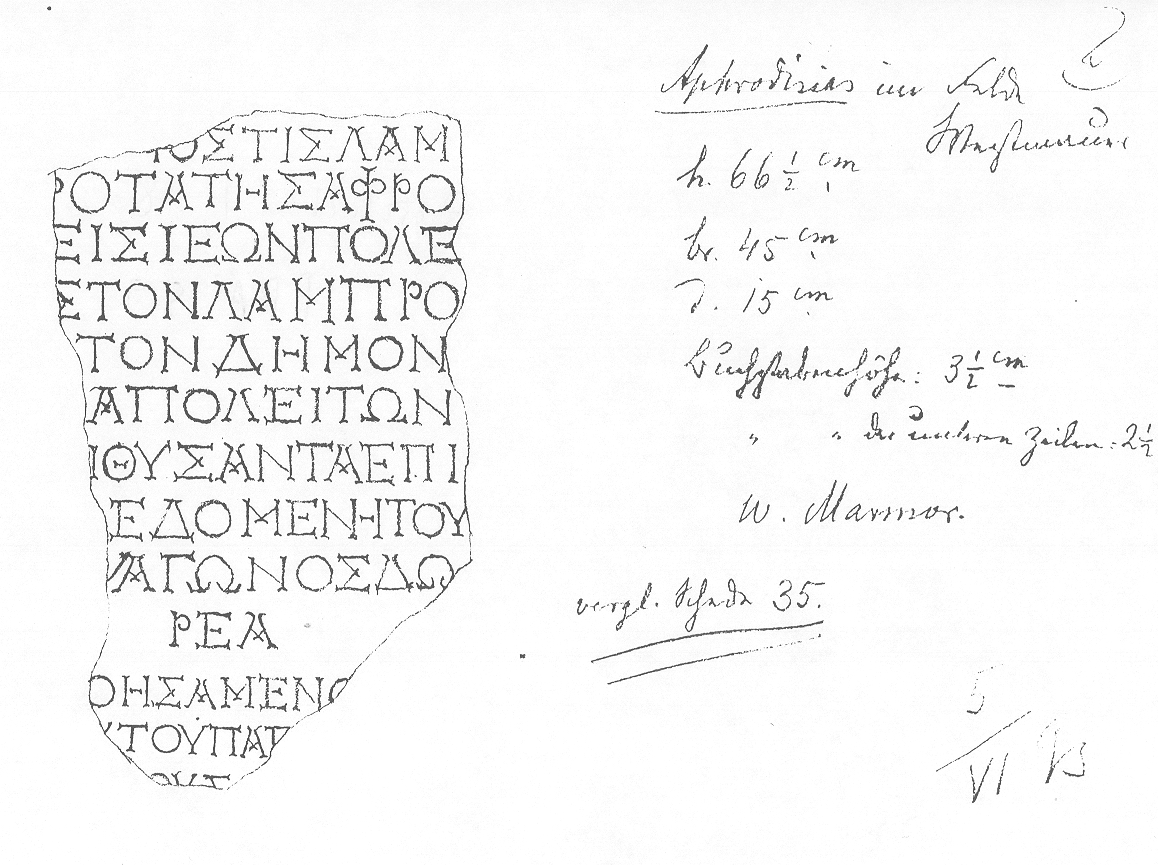 ΟΣΤΙΣΛΑΜ
ΡΟΤΑΤΗΣΑΦΡΟ
ΕΙΣΙΕΩΝΠΟΛΕ
ΣΤΟΝΛΑΜΠΡΟ
ΤΟΝΔΗΜΟΝ
ΑΠΟΛΕΙΤΩΝ
ΙΘΥΣΑΝΤΑΕΠΙ
ΕΔΟΜΕΝΗΤΟΥ
ΑΓΩΝΟΣΔΩ
ΡΕΑ
ΟΗΣΑΜΕΝΟ
ΥΤΟΥΠΑΡ
Aphrodisias im Felde
h. 66 1/2 cm
br. 45 cm
d. 15 cm
Buchstabenhöhe: 3 1/2 cm
" " der unteren Zeilen: 2 1/2
W. Marmor.
vergl. Schede 35.
5/VI 93